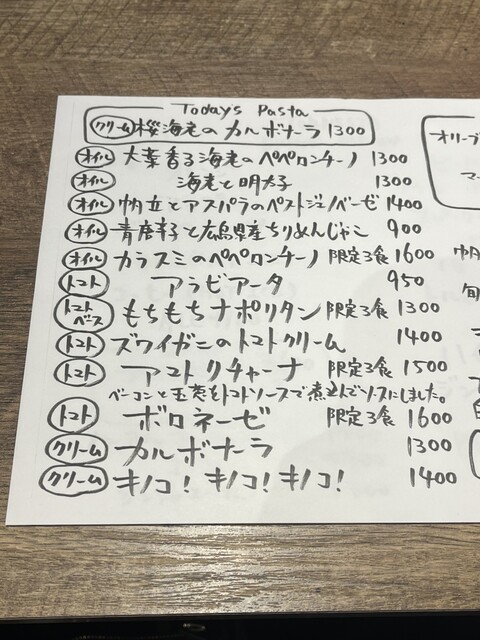 Today's Pasta
クリーム 桜海老のカルボナーラ 1300
オイル 大葉香る海老のペペロンチーノ 1300
オイル 海老と明太子 1300
オイル 帆立とアスパラのペストジェノベーゼ 1400
オイル 青唐辛子と広島県産ちりめんじゃこ 900
オイル カラスミのペペロンチーノ 限定3食 1600
トマト アラビアータ 950
トマトベース もちもちナポリタン 限定3食 1300
トマト ズワイガニのトマトクリーム 1400
トマト アマトリチャーナ 限定3食 1500
ベーコンと玉葱をトマトソースで煮込んでソースにしました。
トマト ボロネーゼ 限定3食 1600
クリーム カルボナーラ 1300
クリーム キノコ! キノコ! キノコ! 1400
オリーブ
マー